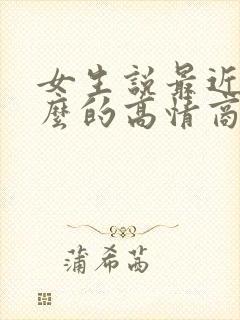 女生說最近
麼的高情商
蒲希茜